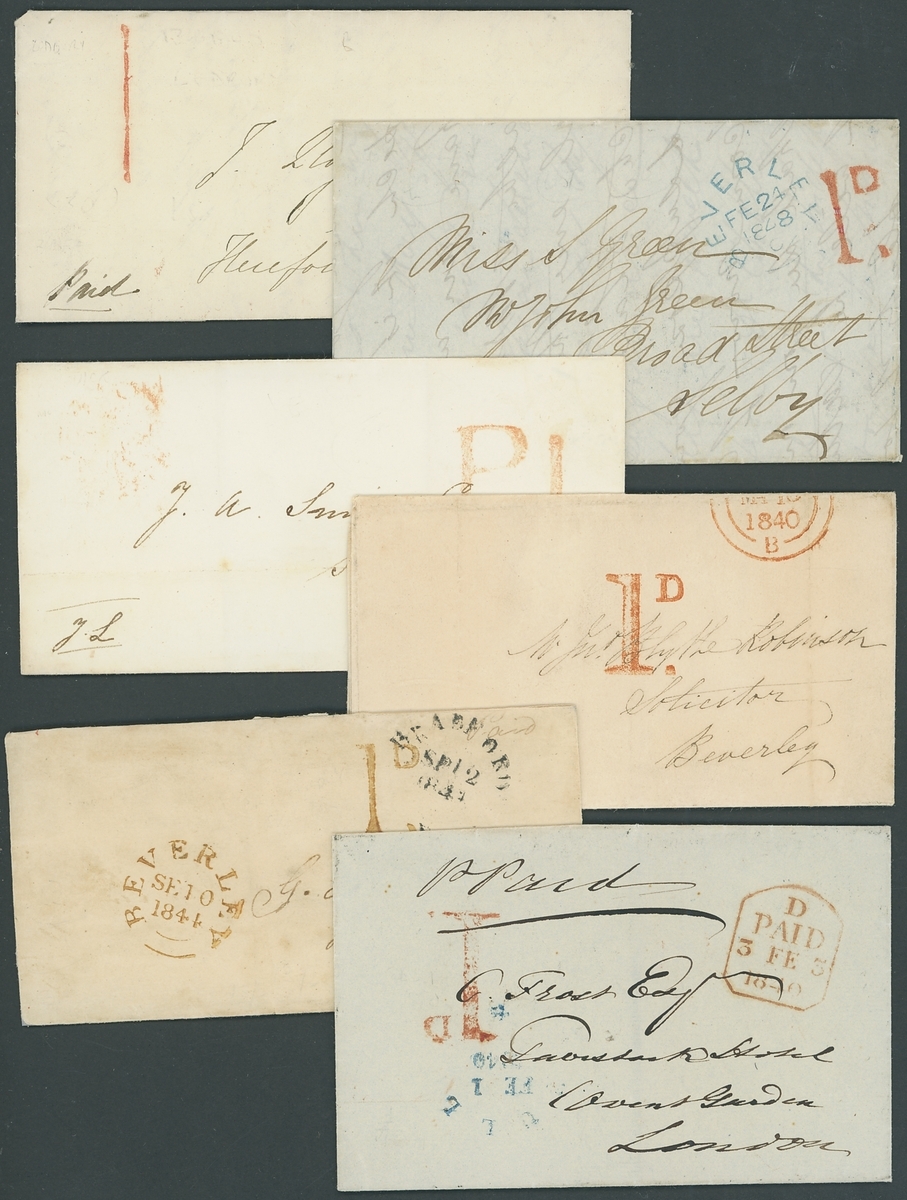 Paid
BEVERLEY
FE 24
1848
1D.
Miss S Green
Mr John Green
Broad Street
Selby
P1
J. A.
J. L
1840
B
1D.
Mr Jno. Blythe Robinson
Solicitor
Beverley
1D
BRADFORD
SP 12
1844
BEVERLEY
SE 10
1844
P Paid
D
PAID
3 FE 3
1840
1D
C Frost Esq
Tavistock Hotel
Covent Garden
London